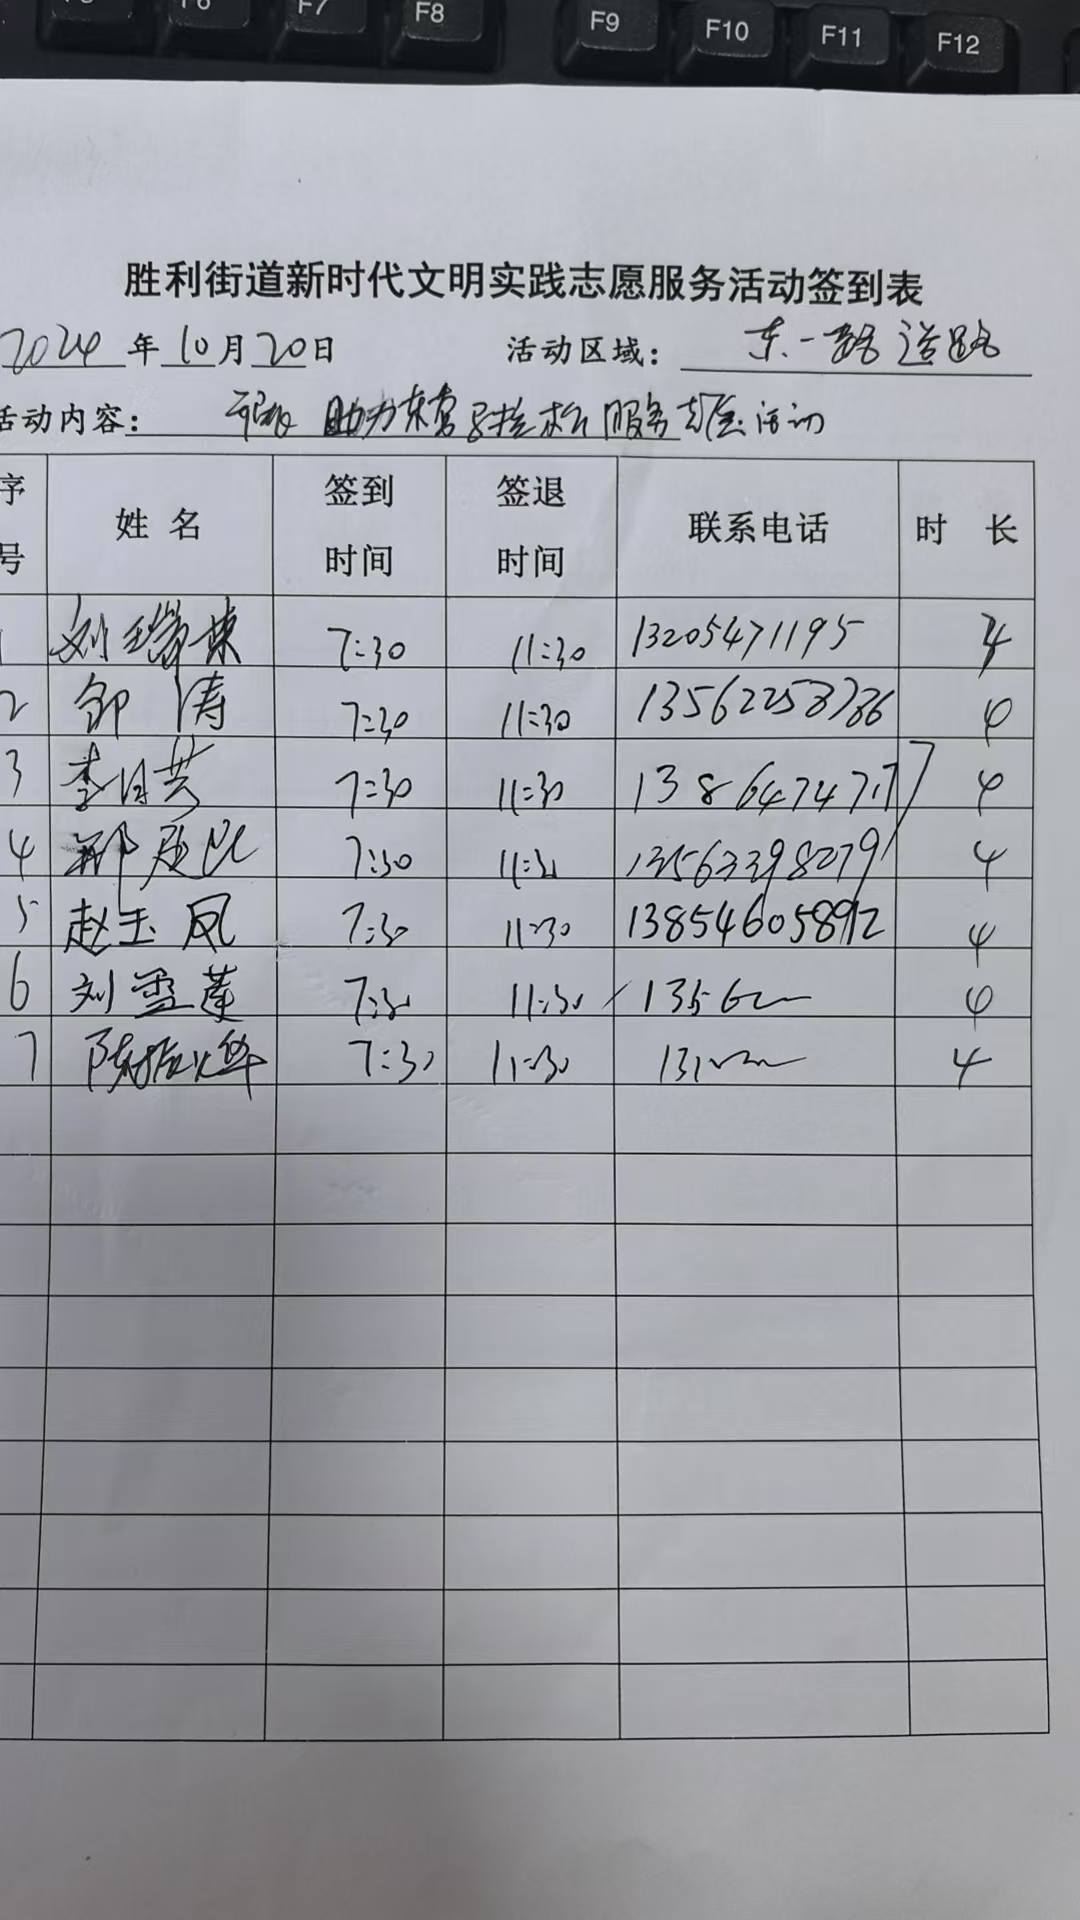 F6 F7 F8 F9 F10 F11 F12
胜利街道新时代文明实践志愿服务活动签到表
2024年10月20日 活动区域：东一路道路
活动内容：助力东营马拉松服务活动
序号 姓名 签到时间 签退时间 联系电话 时长
1 刘瑞英 7:30 11:30 13205471195 4
2 邹涛 7:30 11:30 4
3 李日芳 7:30 11:30 13864747177 4
4 7:30 11:30 13563398279 4
5 赵玉凤 7:30 11:30 13854605892 4
6 刘雪莲 7:30 11:30 1356 4
7 陈振华 7:30 11:30 131 4